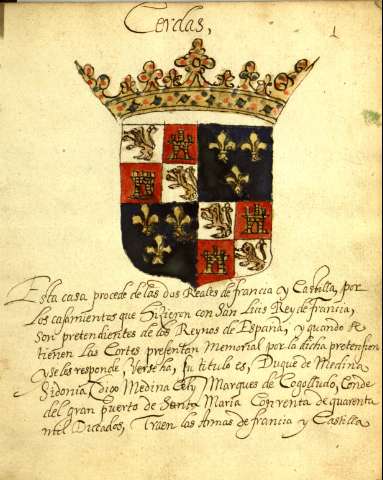 Cerdas,
1
Esta casa procede de las dos Reales de francia y Castilla, por
Los casamientos que hizieron con San Luis Rey de francia,
Son pretendientes de los Reynos de España, y quando se
tienen Las Cortes presentan Memorial por la dicha pretension
y se les responde, Verse ha, su titulo es, Duque de Medina
Sidonia, digo Medina Cely, Marques de Cogolludo, Conde
del gran puerto de Santa Maria Con renta de quarenta
mil Ducados, Traen las Armas de francia y Castilla